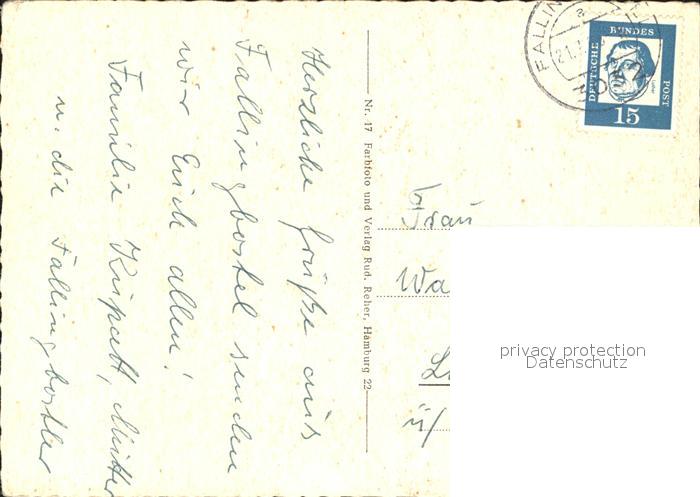 Herzliche Grüße aus
Fallingbostel senden
wir Euch allen!
Familie Mutter
u. die Fallingbostler
Nr. 17 Farbfoto und Verlag Rud. Reher, Hamburg 22
FALLIN
21.
DEUTSCHE
BUNDES
POST
15
Frau
Wa
ü/
privacy protection
Datenschutz